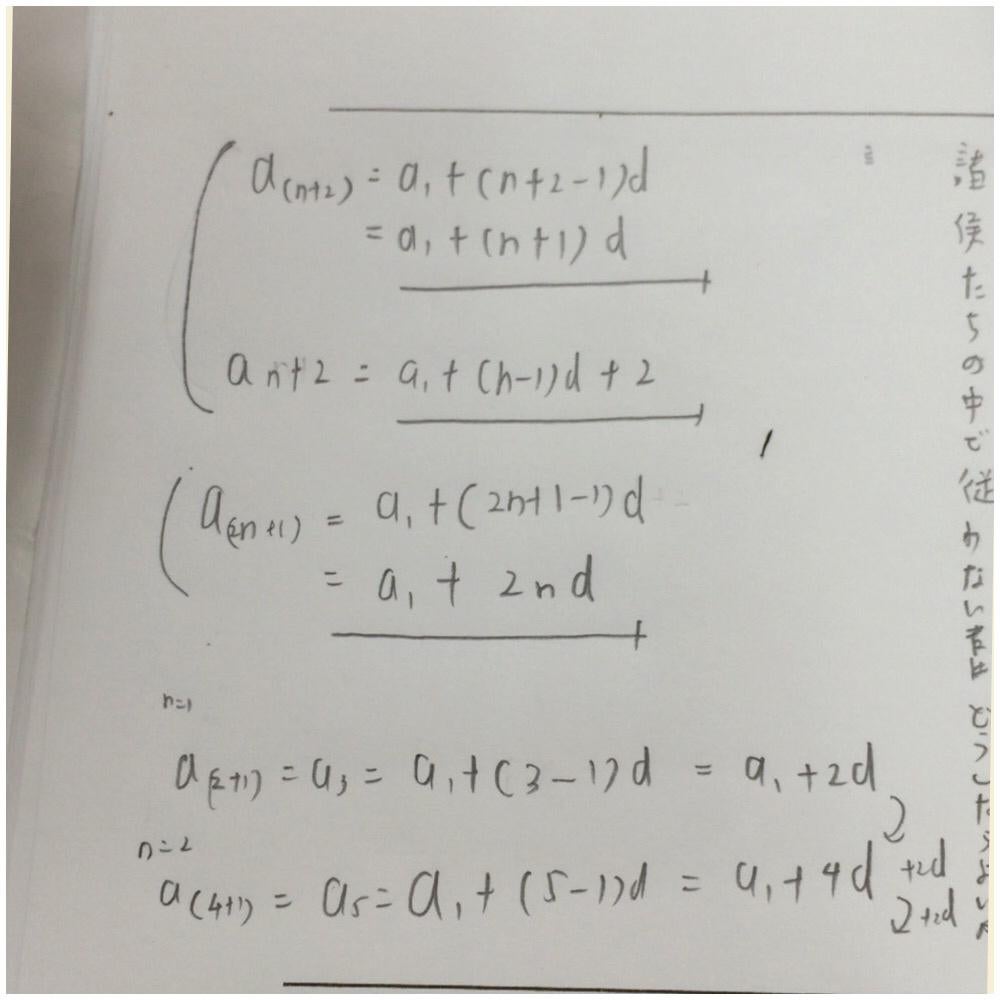 a(n+2) = a₁ + (n+2-1)d
= a₁ + (n+1)d
a n+2 = a₁ + (n-1)d + 2
a(2n+1) = a₁ + (2n+1-1)d
= a₁ + 2nd
n=1
a(2+1) = a₃ = a₁ + (3-1)d = a₁ + 2d
+2d
n=2
a(4+1) = a₅ = a₁ + (5-1)d = a₁ + 4d
+2d
諸侯たちの中で従わない者はどうしたらよい